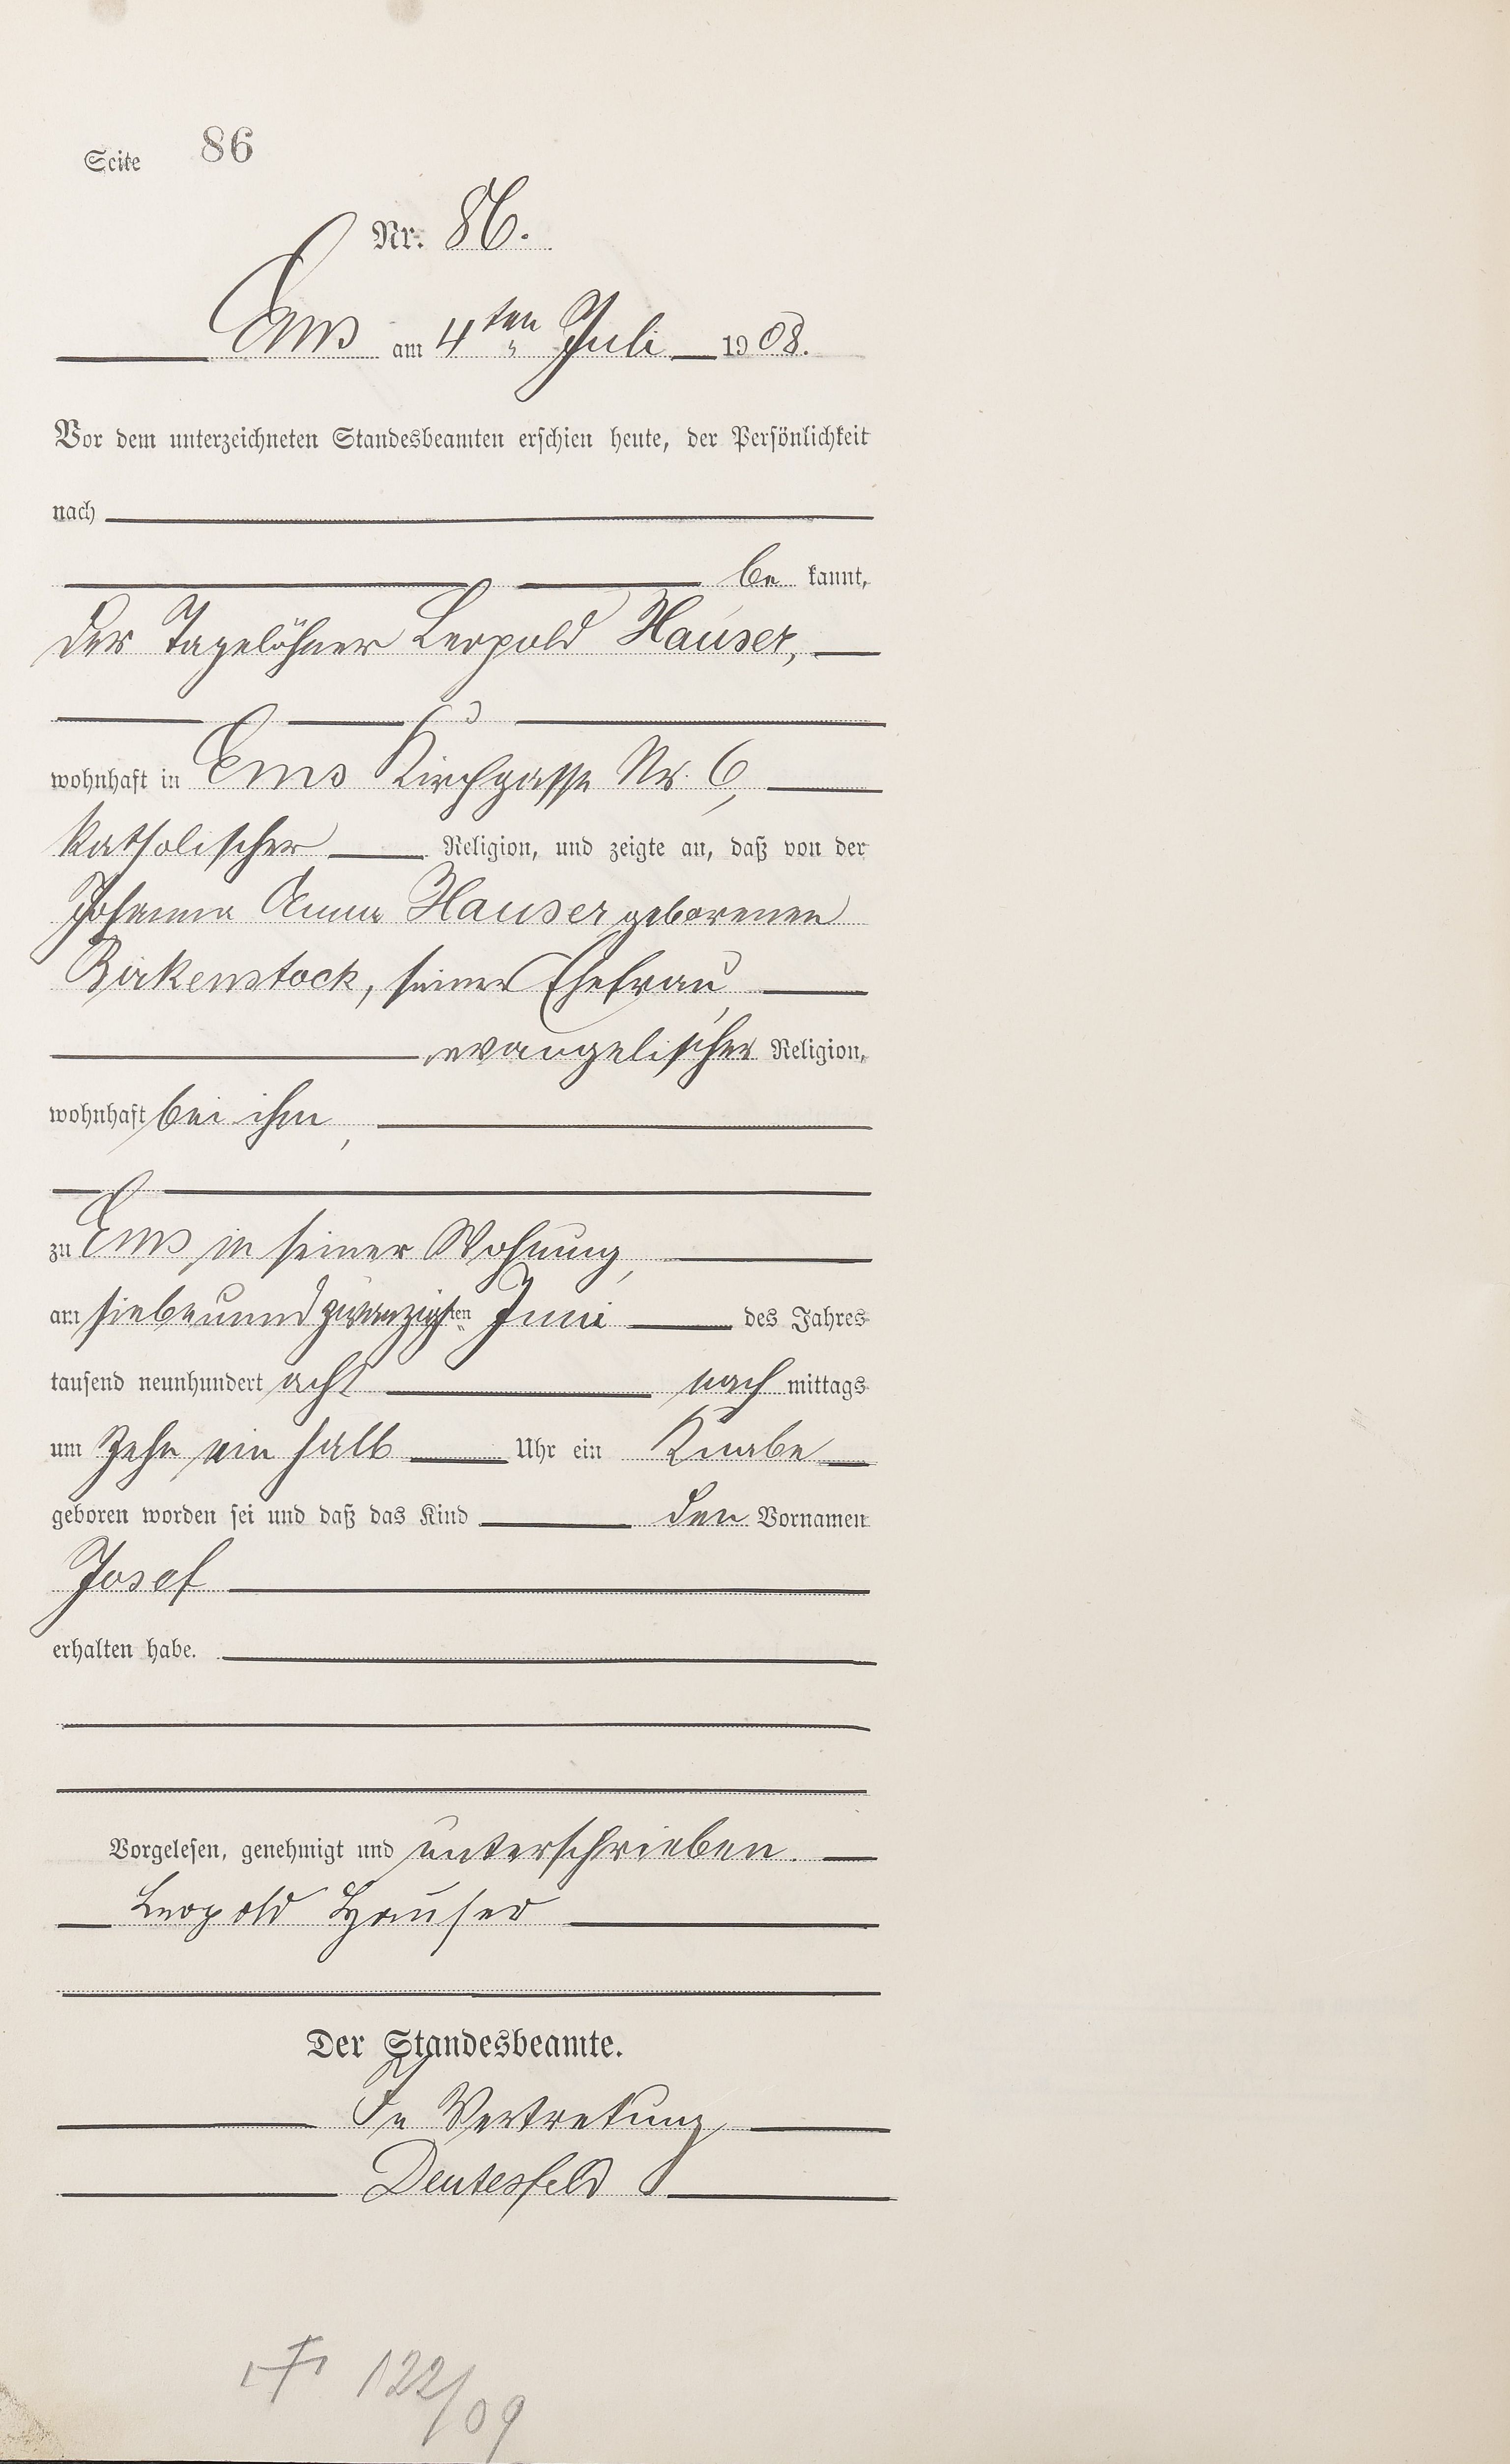 Seite 86
Nr. 86.
Ems am 4ten Juli 1908.
Vor dem unterzeichneten Standesbeamten erschien heute, der Persönlichkeit
nach
be kannt,
der Tagelöhner Leopold Hauser,
wohnhaft in Ems Kirchgasse Nr. 6,
katholischer Religion, und zeigte an, daß von der
Johanna Anna Hauser geborenen
Birkenstock, seiner Ehefrau
evangelischer Religion,
wohnhaft bei ihm,
zu Ems in seiner Wohnung,
am siebenundzwanzigsten Juni des Jahres
tausend neunhundert acht nach mittags
um zehn ein halb Uhr ein Knabe
geboren worden sei und daß das Kind den Vornamen
Josef
erhalten habe.
Vorgelesen, genehmigt und unterschrieben.
Leopold Hauser
Der Standesbeamte.
In Vertretung
Deutesfeld
122/09